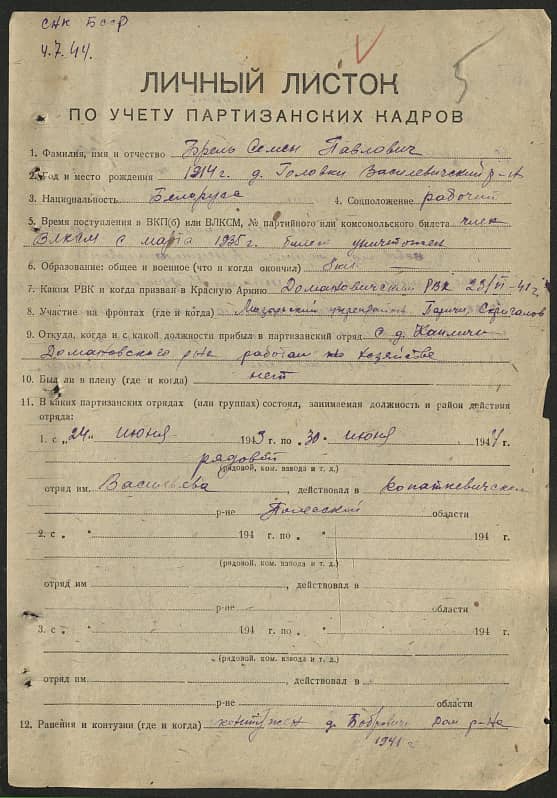 СНК БССР
4.7.44.
5
ЛИЧНЫЙ ЛИСТОК
ПО УЧЕТУ ПАРТИЗАНСКИХ КАДРОВ
1. Фамилия, имя и отчество Брель Семен Павлович
2. Год и место рождения 1914 г. д. Головки Василевичский р-н
3. Национальность Белорус 4. Соцположение рабочий
5. Время поступления в ВКП(б) или ВЛКСМ, № партийного или комсомольского билета член
ВЛКСМ с марта 1935 г. билет уничтожен
6. Образование: общее и военное (что и когда окончил)
7. Каким РВК и когда призван в Красную Армию Домановичский РВК 23/VI-41 г
8. Участие на фронтах (где и когда) Мозырьский Паричи,
9. Откуда, когда и с какой должности прибыл в партизанский отряд с д.
Домановского р-на работал по хозяйстве
10. Был ли в плену (где и когда) нет
11. В каких партизанских отрядах (или группах) состоял, занимаемая должность и район действия
отряда:
1. с „24" июня 1943 г. по „30" июня 1944 г.
рядовой
(рядовой, ком. взвода и т. д.)
отряд им. Васильева, действовал в Копаткевичском
р-не Полесский области
2. с „ " 194 г. по „ " 194 г.
(рядовой, ком. взвода и т. д.)
отряд им. , действовал в
р-не области
3. с „ " 194 г. по „ " 194 г.
(рядовой, ком. взвода и т. д.)
отряд им. , действовал в
р-не области
12. Ранения и контузии (где и когда) контужен д. Бобровичи Дом р-на
1941 г